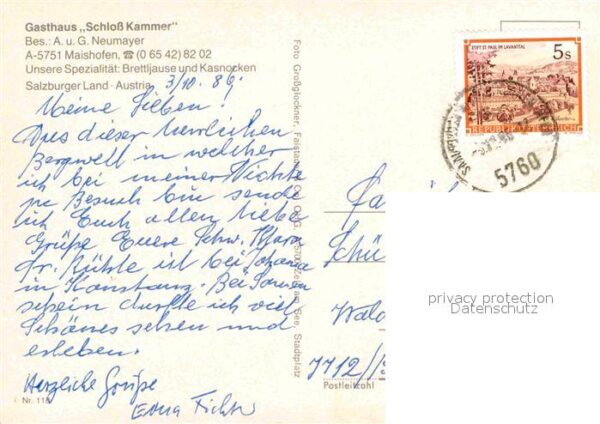 Gasthaus „Schloß Kammer"
Bes.: A. u. G. Neumayer
A-5751 Maishofen, ☎ (0 65 42) 82 02
Unsere Spezialität: Brettljause und Kasnocken
Salzburger Land · Austria
3/10. 86.
Meine Lieben!
Aus dieser herrlichen
Bergwelt in welcher
ich bei meiner Nichte
zu Besuch bin sende
ich Euch allen liebe
Grüße Euere Schw.
Fr. ist bei
in Konstanz. Bei Sonnen
schein durfte ich viel
Schönes sehen und
erleben.
Herzliche Grüße
Erna
Nr. 118
Foto Großglockner,
See, Stadtplatz
STIFT ST. PAUL IM LAVANTTAL
5s
REPUBLIK ÖSTERREICH
5760
Postleitzahl
7712
privacy protection
Datenschutz